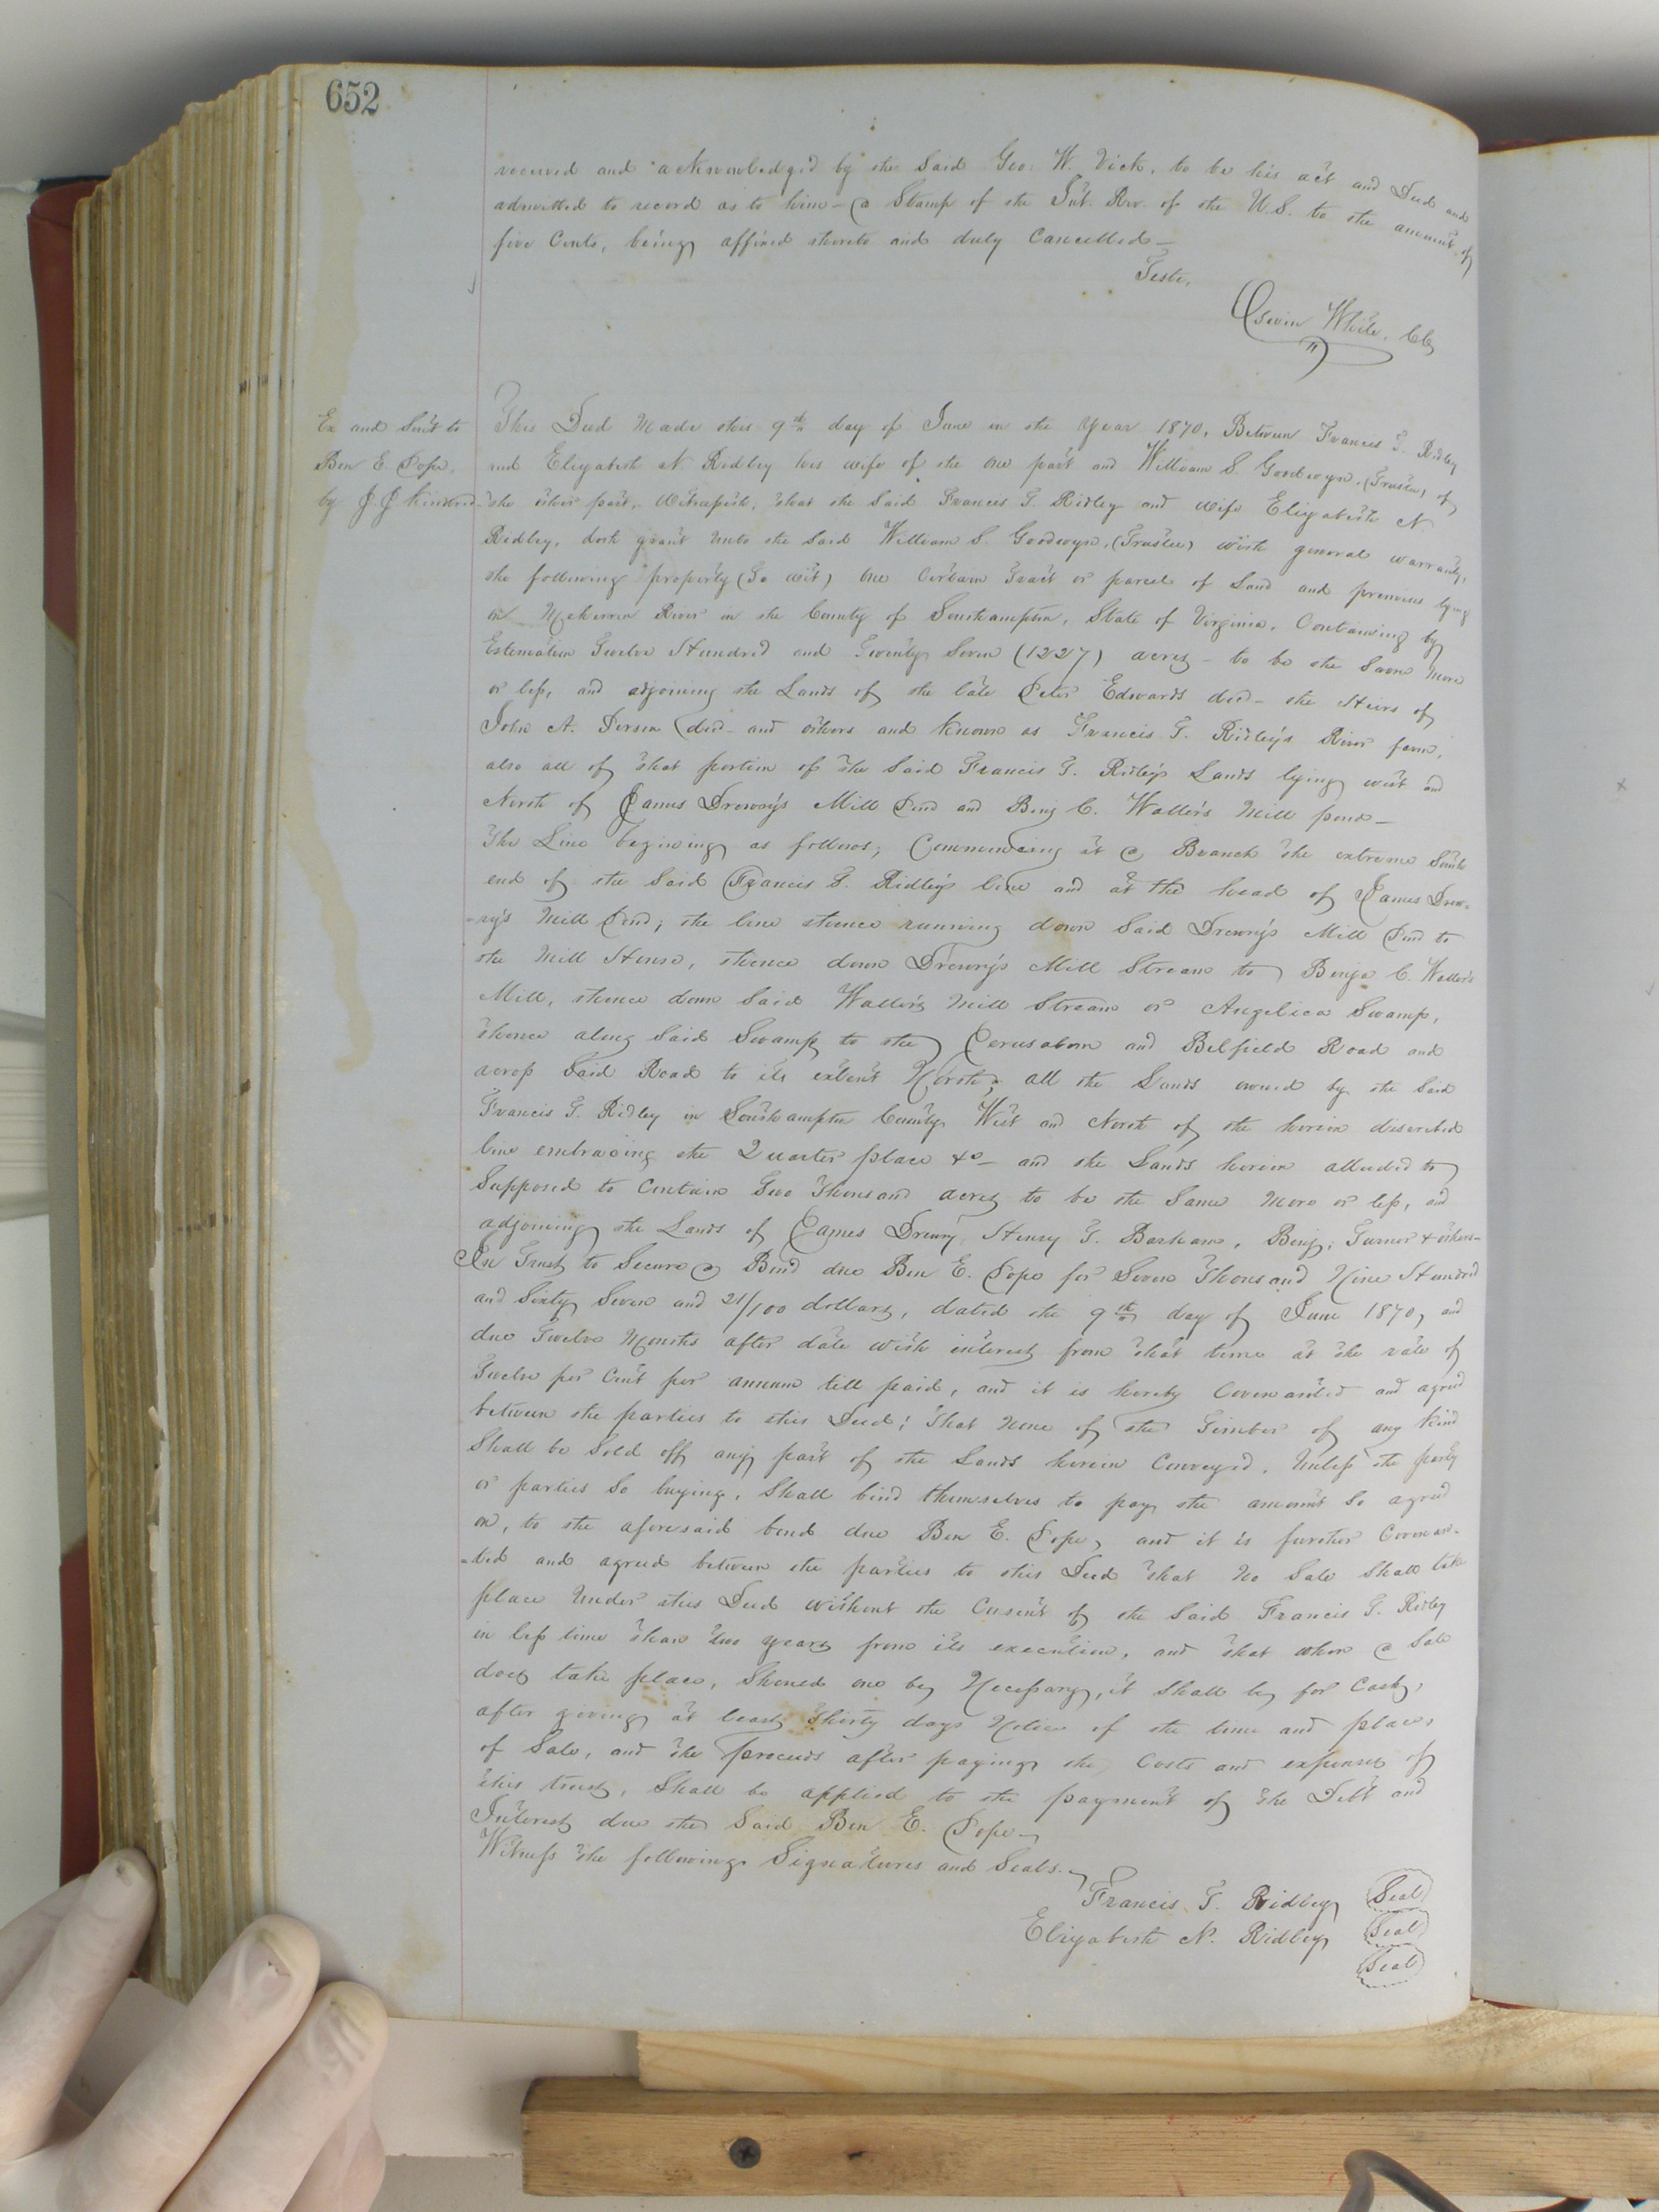 652
received and acknowledged by the Said Geo. W. Vick, to be his act and Deed and
admitted to record as to him - (a Stamp of the Int. Rev. of the U.S. to the amount of
five Cents, being affixed thereto and duly Cancelled -
Teste,
White,
Ex and Sent to
Ben E. Pope,
by J. J. Kindred
This Deed Made this 9th day of June in the Year 1870, Between Francis T. Ridley
and Elizabeth N. Ridley his wife of the one part and William S. Goodwyn, (Trustee) of
the other part, Witnesseth; that the Said Francis T. Ridley and wife Elizabeth N.
Ridley, doth grant unto the Said William S. Goodwyn, (Trustee) with general warranty,
the following property (To wit) One Certain Tract or parcel of Land and premises lying
on Meherrin River in the County of Southampton, State of Virginia, Containing by
Estimation Twelve Hundred and Twenty Seven (1227) acres - to be the Same More
or less, and adjoining the Lands of the late Peter Edwards decd - the Heirs of
John A. Person decd - and others and known as Francis T. Ridley's River farm,
also all of that portion of the Said Francis T. Ridley's Lands lying west and
North of James Drewry's Mill Pond and Benj C. Waller's Mill pond -
The Line begining as follows; Commencing at a Branch the extreme South
end of the Said Francis T. Ridley's line and at the head of James Drew-
-ry's Mill Pond; the line thence running down Said Drewry's Mill Pond to
the Mill House, thence down Drewry's Mill Stream to Benja C. Waller's
Mill, thence down Said Waller's Mill Stream or Angelica Swamp,
thence along Said Swamp to the Jerusalem and Belfield Road and
across Said Road to its extent North; all the Lands owned by the Said
Francis T. Ridley in Southampton County West and North of the herein described
line embracing the Quarter place &c - and the Lands herein alluded to
Supposed to Contain Two Thousand acres to be the Same More or less, and
adjoining the Lands of James Drewry, Henry T. Barham, Benj. Turner & others -
In Trust to Secure a Bond due Ben E. Pope for Seven Thousand Nine Hundred
and Sixty Seven and 21/100 dollars, dated the 9th day of June 1870, and
due Twelve Months after date with interest from that time at the rate of
Twelve per Cent per annum till paid, and it is hereby Covenanted and agreed
between the parties to this Deed; That None of the Timber of any kind
Shall be Sold off any part of the Lands herein Conveyed, Unless the party
or parties So buying, Shall bind themselves to pay the amount So agreed
on, to the aforesaid bond due Ben E. Pope, and it is further Covenan-
-ted and agreed between the parties to this Deed that No Sale Shall take
place Under this Deed without the Consent of the Said Francis T. Ridley
in less time than two years from its execution, and that when a Sale
does take place, Should one be Necessary, it Shall be for Cash,
after giving at least Thirty days Notice of the time and place
of Sale, and the proceeds after paying the Costs and expenses of
this trust, Shall be applied to the payment of the Debt and
Interest due the Said Ben E. Pope -
Witness the following Signatures and Seals. -
Francis T. Ridley Seal
Elizabeth N. Ridley Seal
Seal